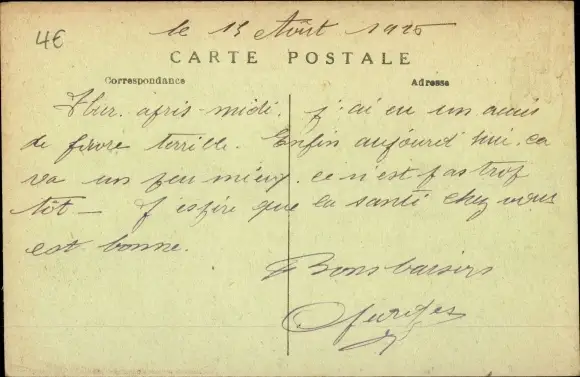 4€
le 13 Août 1925
CARTE POSTALE
Correspondance
Adresse
Hier. après-midi. j'ai eu un accès
de fièvre terrible. Enfin aujourd'hui. ça
va un peu mieux. ce n'est pas trop
tôt - J'espère que la santé chez vous
est bonne.
Bons baisers